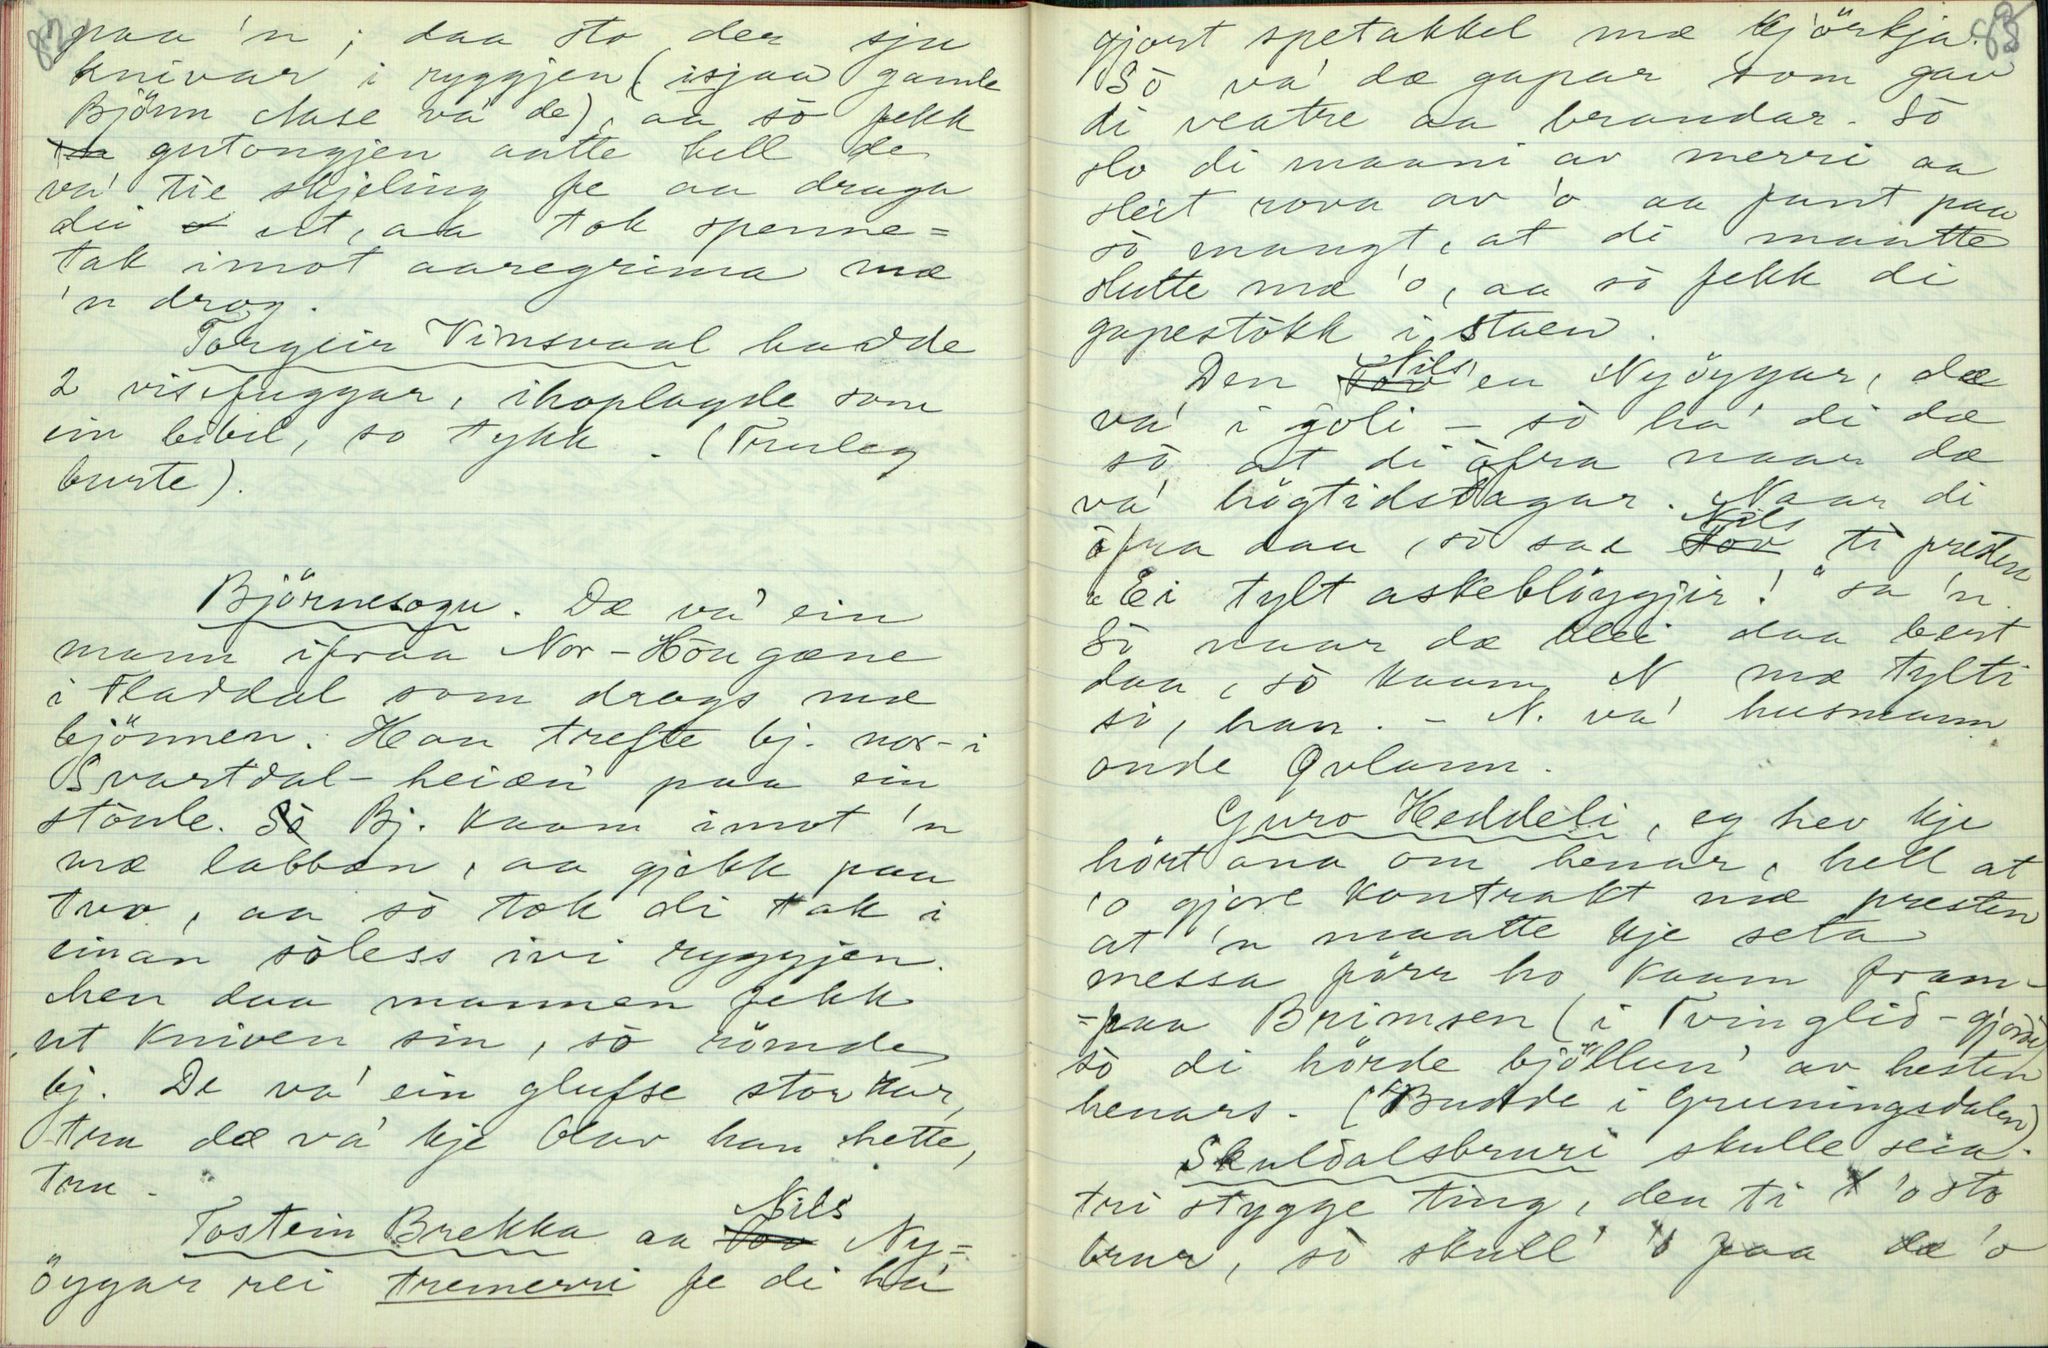 paa 'n ; daa sto der sju
knivar i ryggjen (isjaa gamle
Björn Aase va' de), aa sò fekk
gutongjen aatte hell de
va' tie skjeling fe aa draga
dei ut, aa tok spenne=
tak imot aaregrima mæ
'n drog.
Torgeir Vinsvaal hadde
2 visefuggar, ihoplagde som
ein bibel, so tykk. (Truleg
burte).
Björnesogu. Dæ va' ein
mann ifraa Nor-Höugæne
i Fladdal som drogs mæ
bjönnen. Han trefte bj. nor-i
Svartdal-heiæn' paa ein
stöule. Bj. kaam imot 'n
mæ labbæn, aa gjekk paa
tvo, aa sò tok di tak i
einan sòless ivi ryggjen.
Men daa mannen fekk
ut kniven sin, sò römde
bj. De va' ein glufse stor kar,
tru dæ va' kje Olav han hette,
tru.
Tostein Brekka aa Nils Ny=
öygar rei tremerri fe di ha'
83
85
gjort spetakkel mæ kjörkja.
Sò va' dæ gapar som gav
di veatre aa brandar. Sò
slo di maani av merri aa
sleit rova av 'o aa fant paa
sò mangt, at di maatte
slutte mæ 'o, aa sò fekk di
gapestòkk i staen.
Den Nils'en Nyöygar, dæ
va' i joli – sò ha' di dæ
sò at di òfra naar dæ
va' högtidsdagar. Naar di
òfra daa, sò sae Nils ti presten
"Ei tylt askeblöygjir!" sa 'n.
Sò naar dæ blei daa bert
daa, sò kaam N. mæ tylti
si, han. – N. va' husmann
onde Qvlann.
Guro Heddeli, eg hev kje
hört ana om henar, hell at
'o gjore kontrakt mæ presten
at 'n maatte kje seta
messa förr ho kaam fram-
=paa Brimsen (i Tvinglid-gjordi)
sò di hörde bjöllun' av hesten
henars. (Budde i Gruningsdalen)
Skuldalsbruri skulle seia
tri stygge ting, den ti 'o sto
brur, sò skull' 'o faa dæ 'o